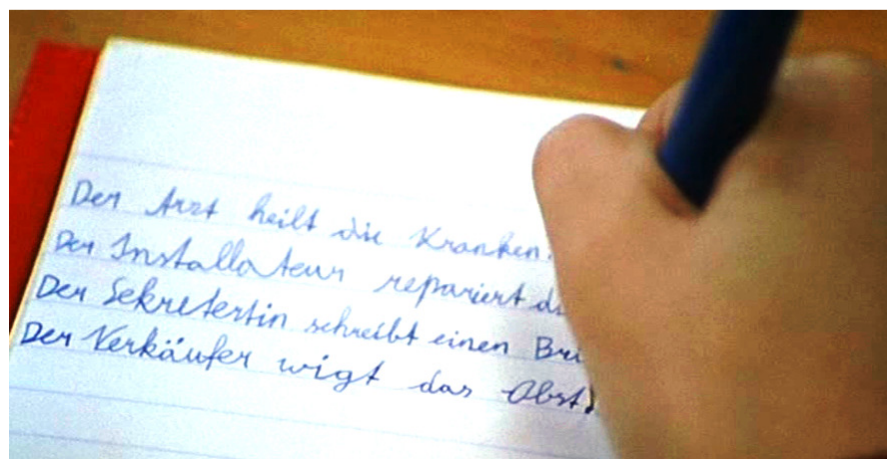 Der Arzt heilt die Kranken.
Der Installateur repariert d
Der Sekretertin schreibt einen Bri
Der Verkäufer wigt das Obst.